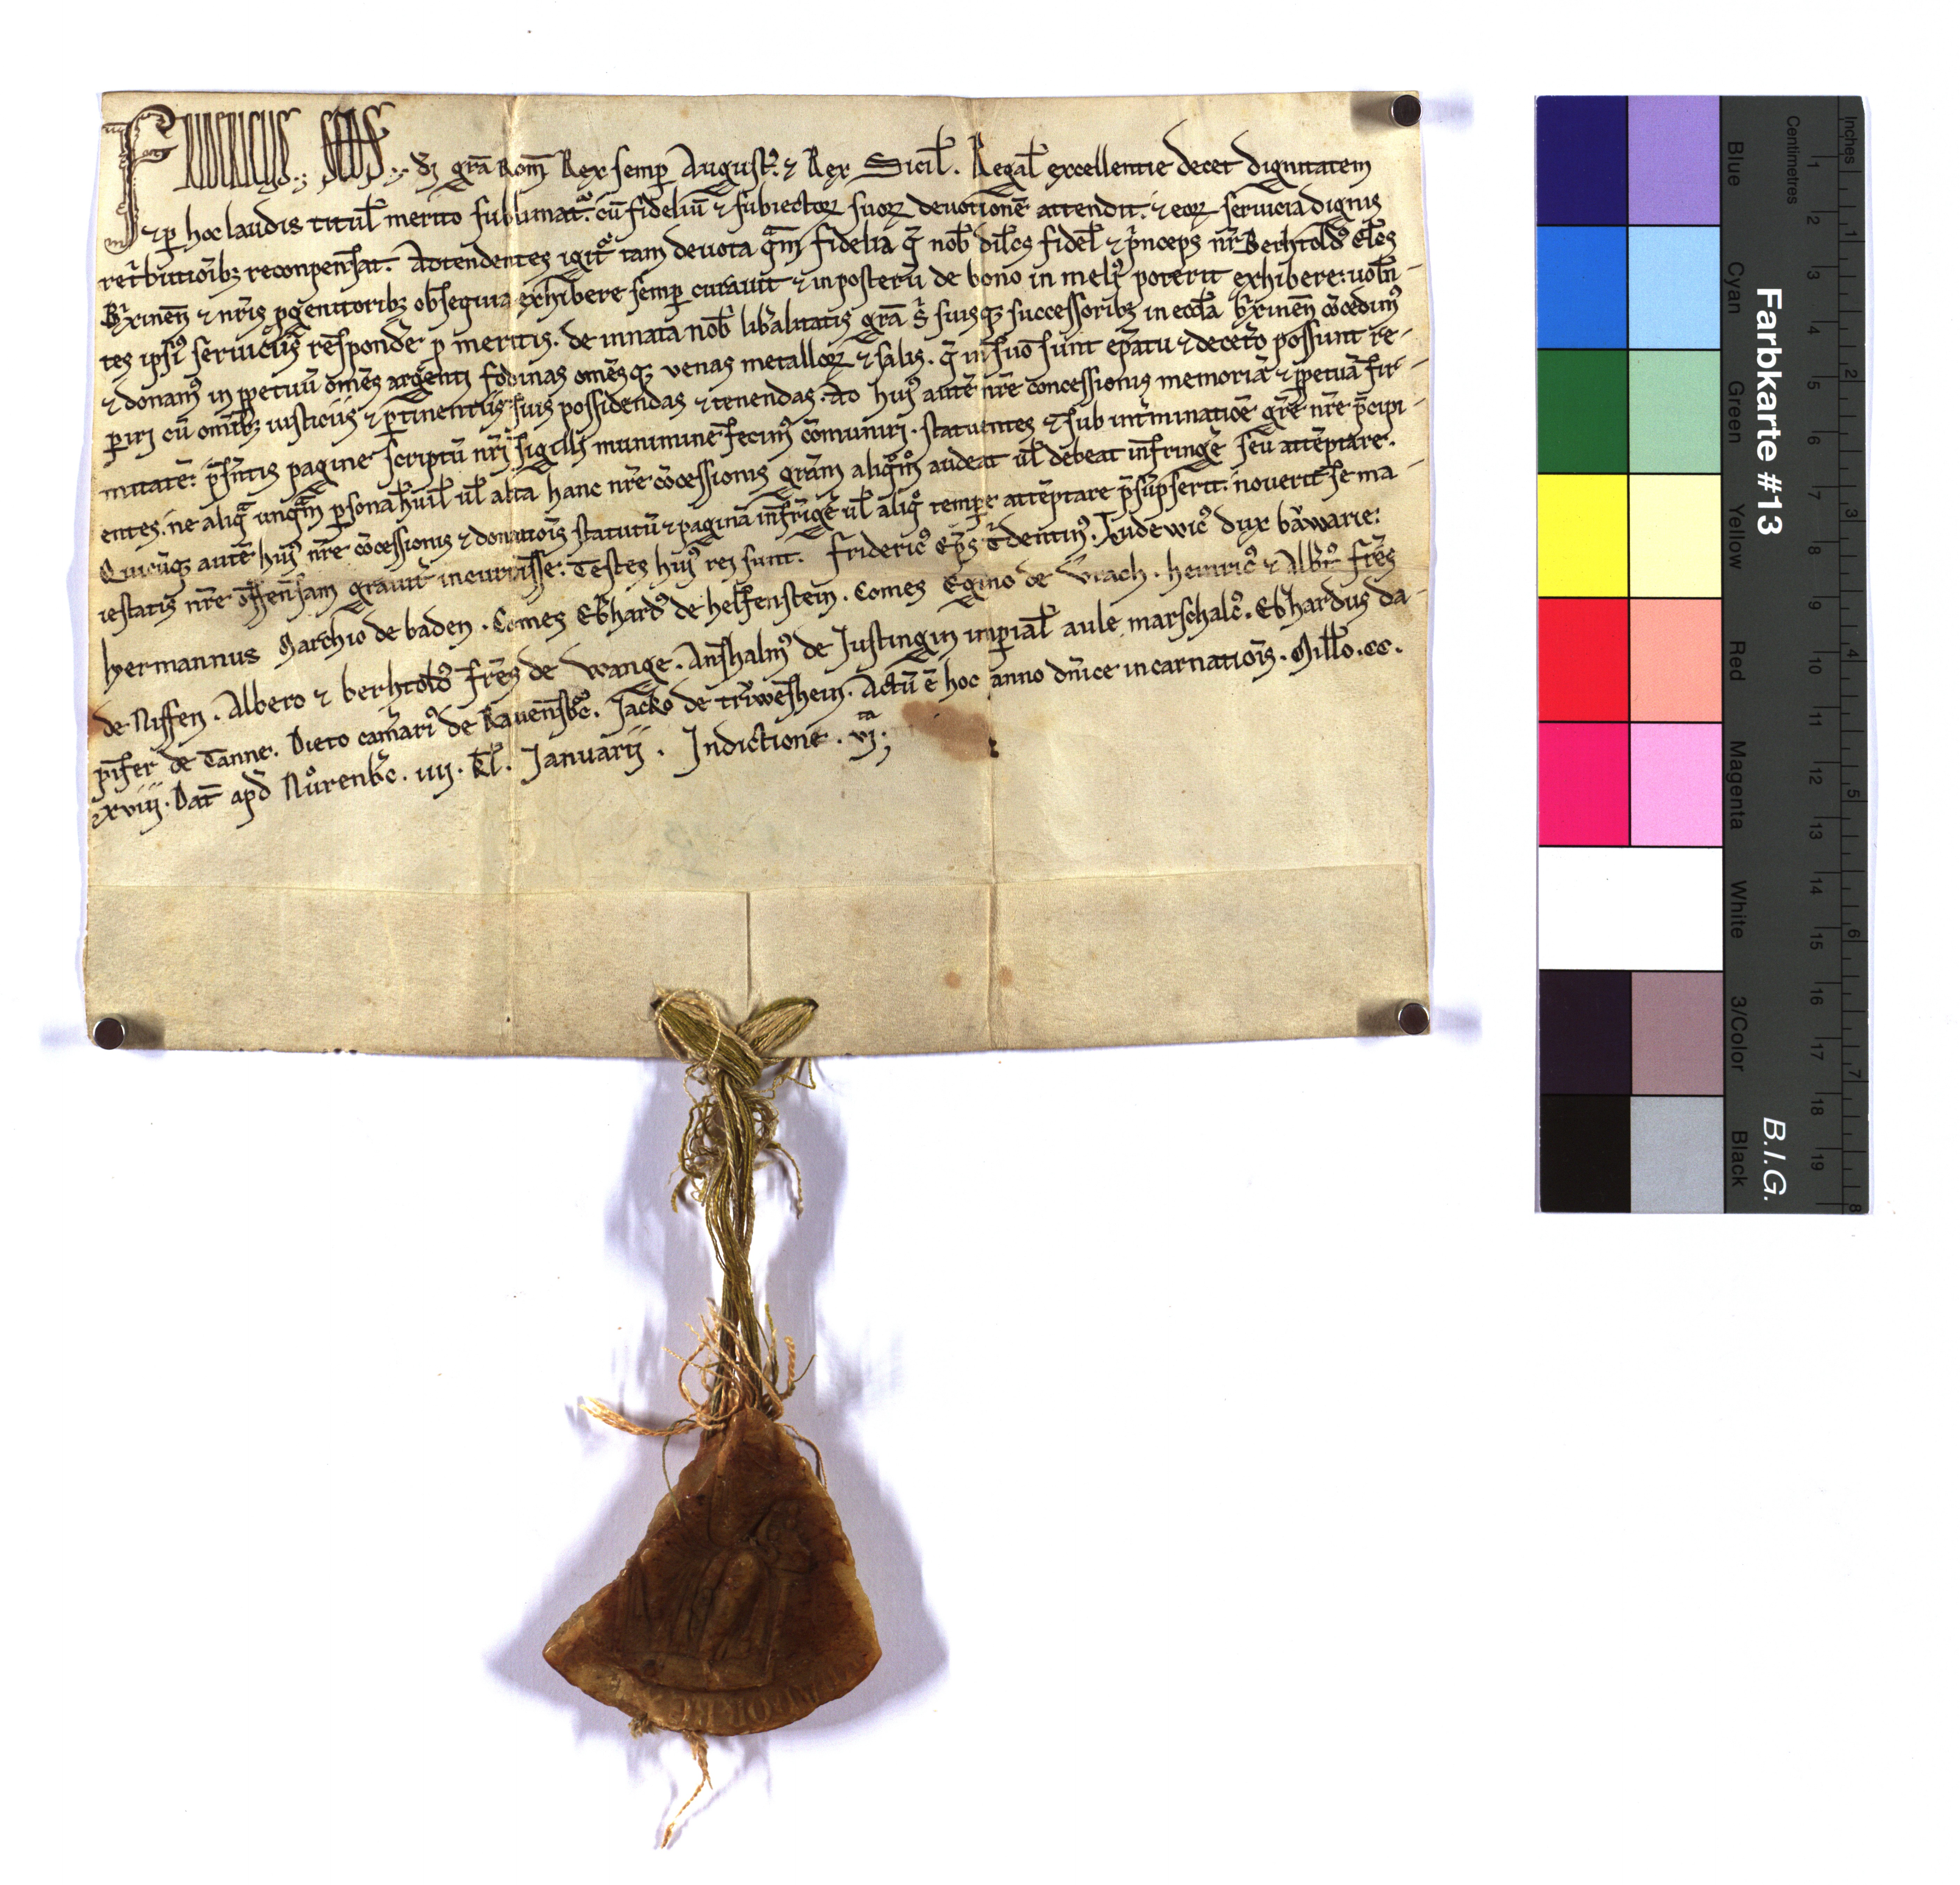 FRIDERICUS SCDS di gra̅ Rom̅ Rex semp̲ August᷒. ⁊ Rex Sicil̅. Regal̅ excellentie decet dignitatem
⁊ p̲ hoc laudis titul̅ merito sublimat᷒. cu̅ fideliu̅ ⁊ subiectoꝝ suoꝝ deuotione̅ attendit. ⁊ eoꝝ seruicia dignis
ret͛butio̅ibꝫ reconpen̅sat. Attendentes igit᷒ tam deuota q̅m fidelia q̅ nob̅ dil̅cs fidel̅ ⁊ p͛nceps nr̅ Berhtold᷒ El̅cs
B͛xinen̅ ⁊ nr̅is ꝓgenitoribꝫ obsequia exhibere semp̲ curauit ⁊ in posteru̅ de bono in meli᷒ poterit exhibere: uole̅-
tes ipsi᷒ seruiciis responde͛ p̲ meritis. de innata nob̅ lib̅alitatis gra̅ s͛ suisqꝫ successoribꝫ in eccl̅a b͛xinen̅ co̅cedim᷒
⁊ donam᷒ in p̲petuu̅ om̅es argenti fodinas om̅esqꝫ uenas metalloꝝ ⁊ salis. q̅ in suo sunt ep̅atu ⁊ decet͛o possunt re-
p̲iri cu̅ om̅ibꝫ iusticiis ⁊ p̲tinentiis suis possidendas ⁊ tenendas. Ad hui᷒ aute̅ nr̅e concessionis memoria̅ ⁊ p̲petua̅ fir-
mitate̅: p̅sn̅tis pagine scriptu̅ nr̅i sigilli munimine fecim᷒ co̅muniri. statuentes ⁊ sub int͛minatio̅e gr̅e nr̅e p̅cipi-
entes. ne aliq̅ unq̅m p̲sona hu̅il̅ ul̅ alta hanc nr̅e co̅cessionis gr̅am aliq̅m᷒ audeat ul̅ debeat infringe͛ seu atte̅ptare.
Quicu̅qꝫ aute̅ hui᷒ nr̅e co̅cessionis ⁊ donatio̅is statutu̅ ⁊ pagina̅ inf͛ige͛ ul̅ aliq᷒ tempore atte̅ptare p̅su̅pserit. nouerit se ma-
iestatis nr̅e offen̅sam grauit͛ incurrisse. Testes hui᷒ rei sunt. Frideric᷒ Ep̅s T͛dentin᷒. Ludewic᷒ dux bawarie.
hermannus Marchio de baden. Comes Eb̅hard᷒ de helfenstein. Comes Egino de Vrach. heinric᷒ ⁊ Alb̅t᷒ fr̅es
de Niffen. Albero ⁊ berhtold᷒ fr̅es de Wange. Anshalm᷒ de Justingin imp̲ial̅ aule marschalc᷒. Eb̅hardus da-
pifer de Tanne. Dieto cam̅ari᷒ de Rauensb͛c. Jacko de tr͛weshein. Actu̅ e̅ hoc anno dn̅ice incarnatio̅is. Mill̅o. cc.
xviii. Dat̅ apd̅ Nůrenb͛c. iiii. kl̅. Januarii. Indictione. vii.ᵗᵃ
Farbkarte #13
B.I.G.
Blue
Cyan
Green
Yellow
Red
Magenta
White
3/Color
Black
Centimetres
1 2 3 4 5 6 7 8 9 10 11 12 13 14 15 16 17 18 19
Inches
1 2 3 4 5 6 7 8